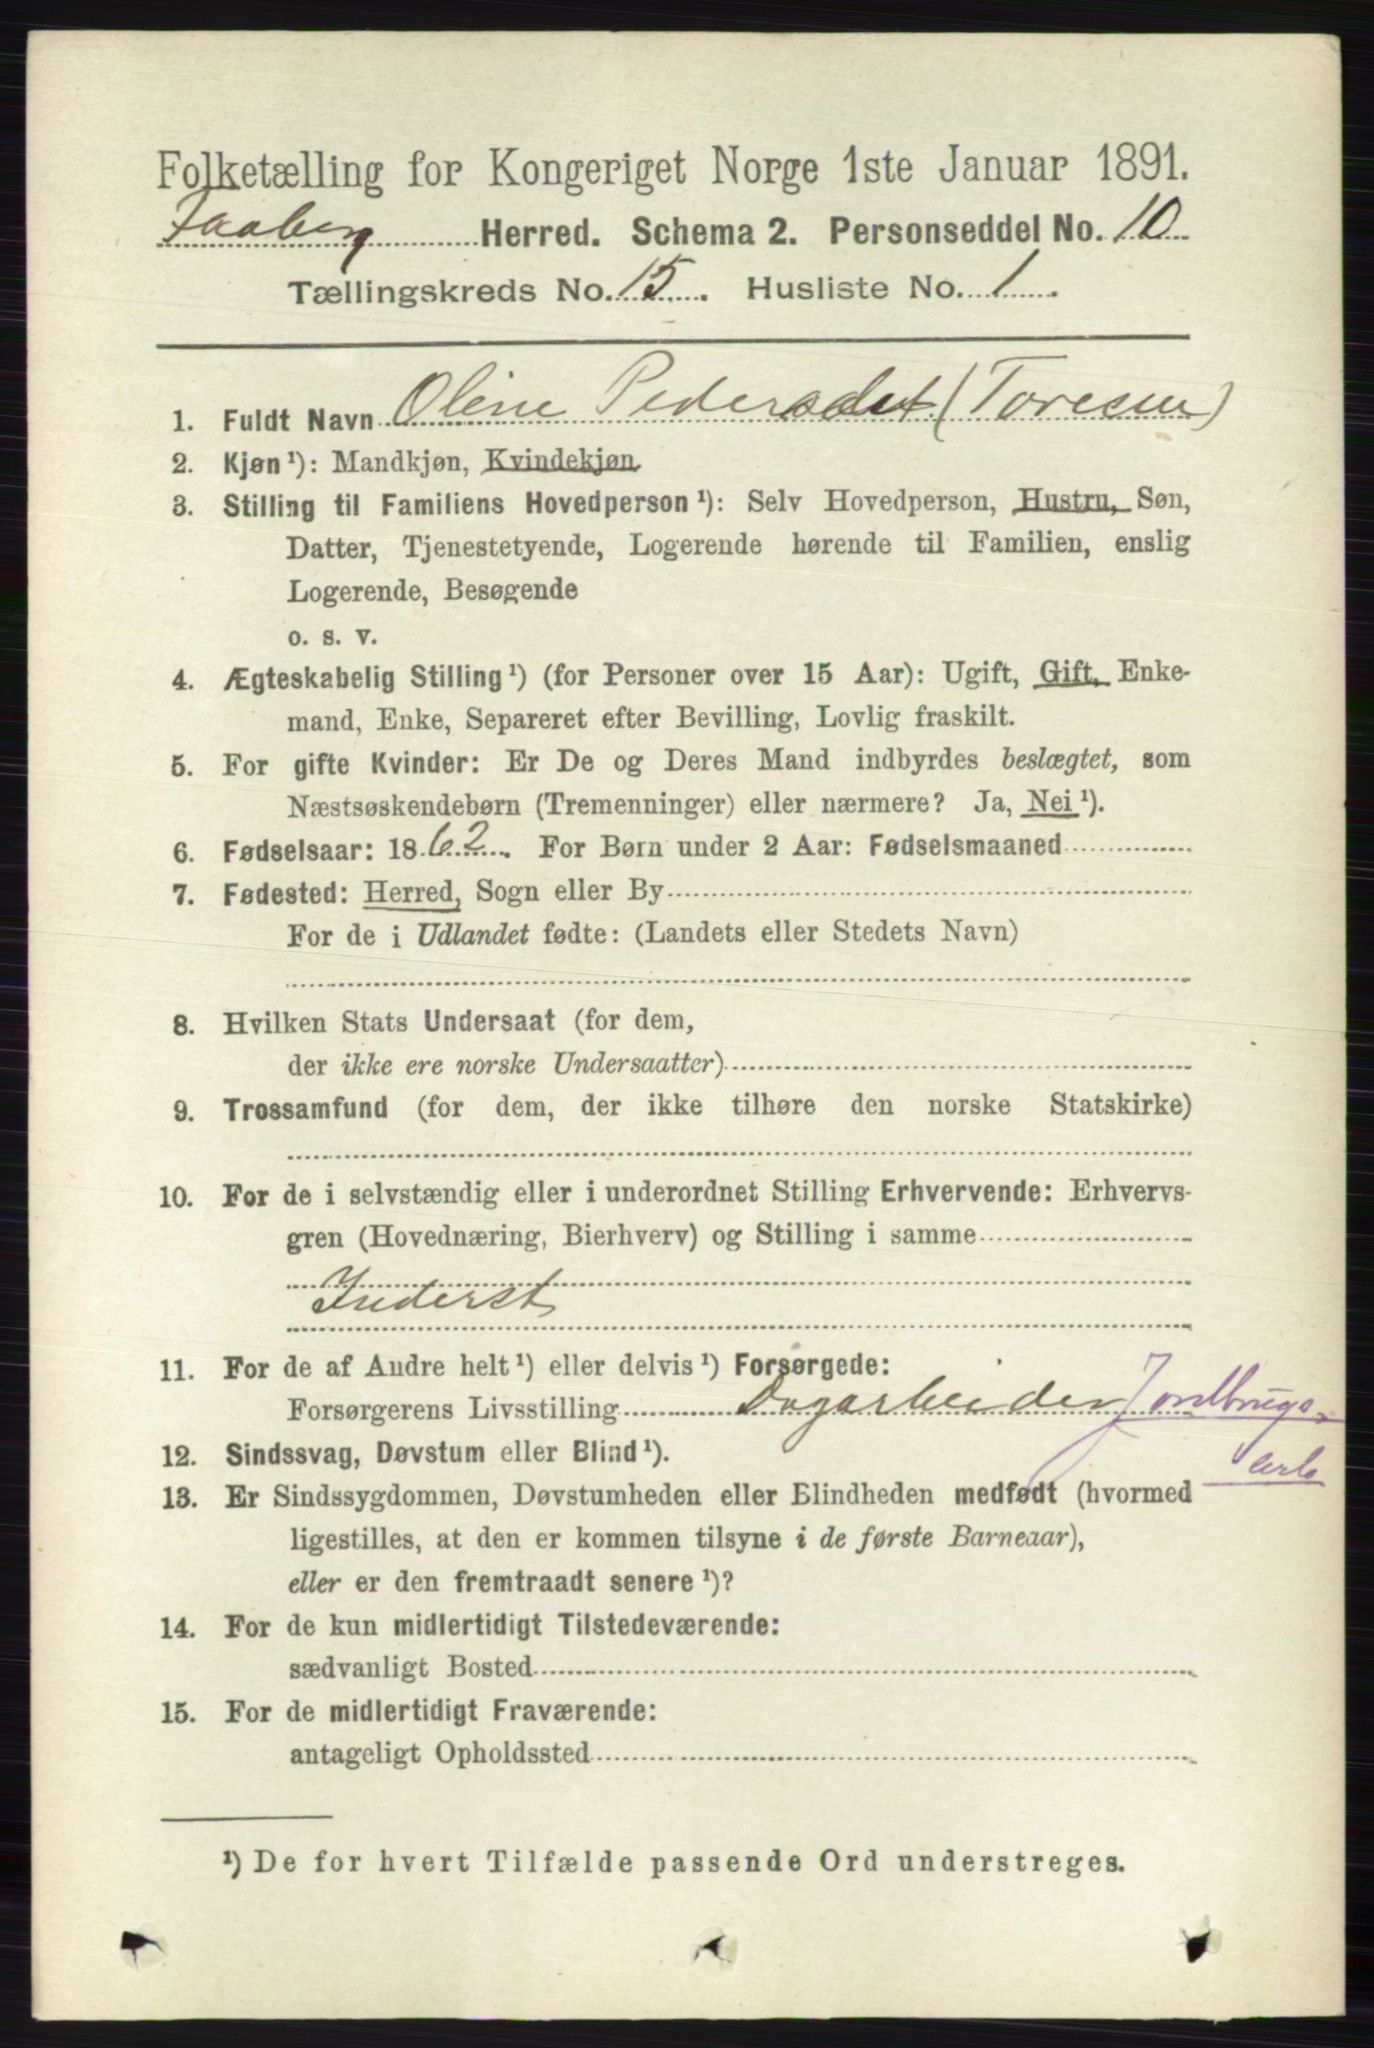 Folketælling for Kongeriget Norge 1ste Januar 1891.
Faaberg Herred. Schema 2. Personseddel No. 10
Tællingskreds No. 15. Husliste No. 1.
1. Fuldt Navn Oline Pedersdat. (Toresen)
2. Kjøn¹): Mandkjøn, Kvindekjøn
3. Stilling til Familiens Hovedperson¹): Selv Hovedperson, Hustru, Søn,
Datter, Tjenestetyende, Logerende hørende til Familien, enslig
Logerende, Besøgende
o. s. v.
4. Ægteskabelig Stilling¹) (for Personer over 15 Aar): Ugift, Gift, Enke-
mand, Enke, Separeret efter Bevilling, Lovlig fraskilt.
5. For gifte Kvinder: Er De og Deres Mand indbyrdes beslægtet, som
Næstsøskendebørn (Tremenninger) eller nærmere? Ja, Nei¹).
6. Fødselsaar: 1862. For Børn under 2 Aar: Fødselsmaaned
7. Fødested: Herred, Sogn eller By
For de i Udlandet fødte: (Landets eller Stedets Navn)
8. Hvilken Stats Undersaat (for dem,
der ikke ere norske Undersaatter)
9. Trossamfund (for dem, der ikke tilhøre den norske Statskirke)
10. For de i selvstændig eller i underordnet Stilling Erhvervende: Erhvervs-
gren (Hovednæring, Bierhverv) og Stilling i samme
Inderst
11. For de af Andre helt¹) eller delvis¹) Forsørgede:
Forsørgerens Livsstilling Dagarbeider Jordbrugs-
arb
12. Sindssvag, Døvstum eller Blind¹).
13. Er Sindssygdommen, Døvstumheden eller Blindheden medfødt (hvormed
ligestilles, at den er kommen tilsyne i de første Barneaar),
eller er den fremtraadt senere¹)?
14. For de kun midlertidigt Tilstedeværende:
sædvanligt Bosted
15. For de midlertidigt Fraværende:
antageligt Opholdssted
¹) De for hvert Tilfælde passende Ord understreges.